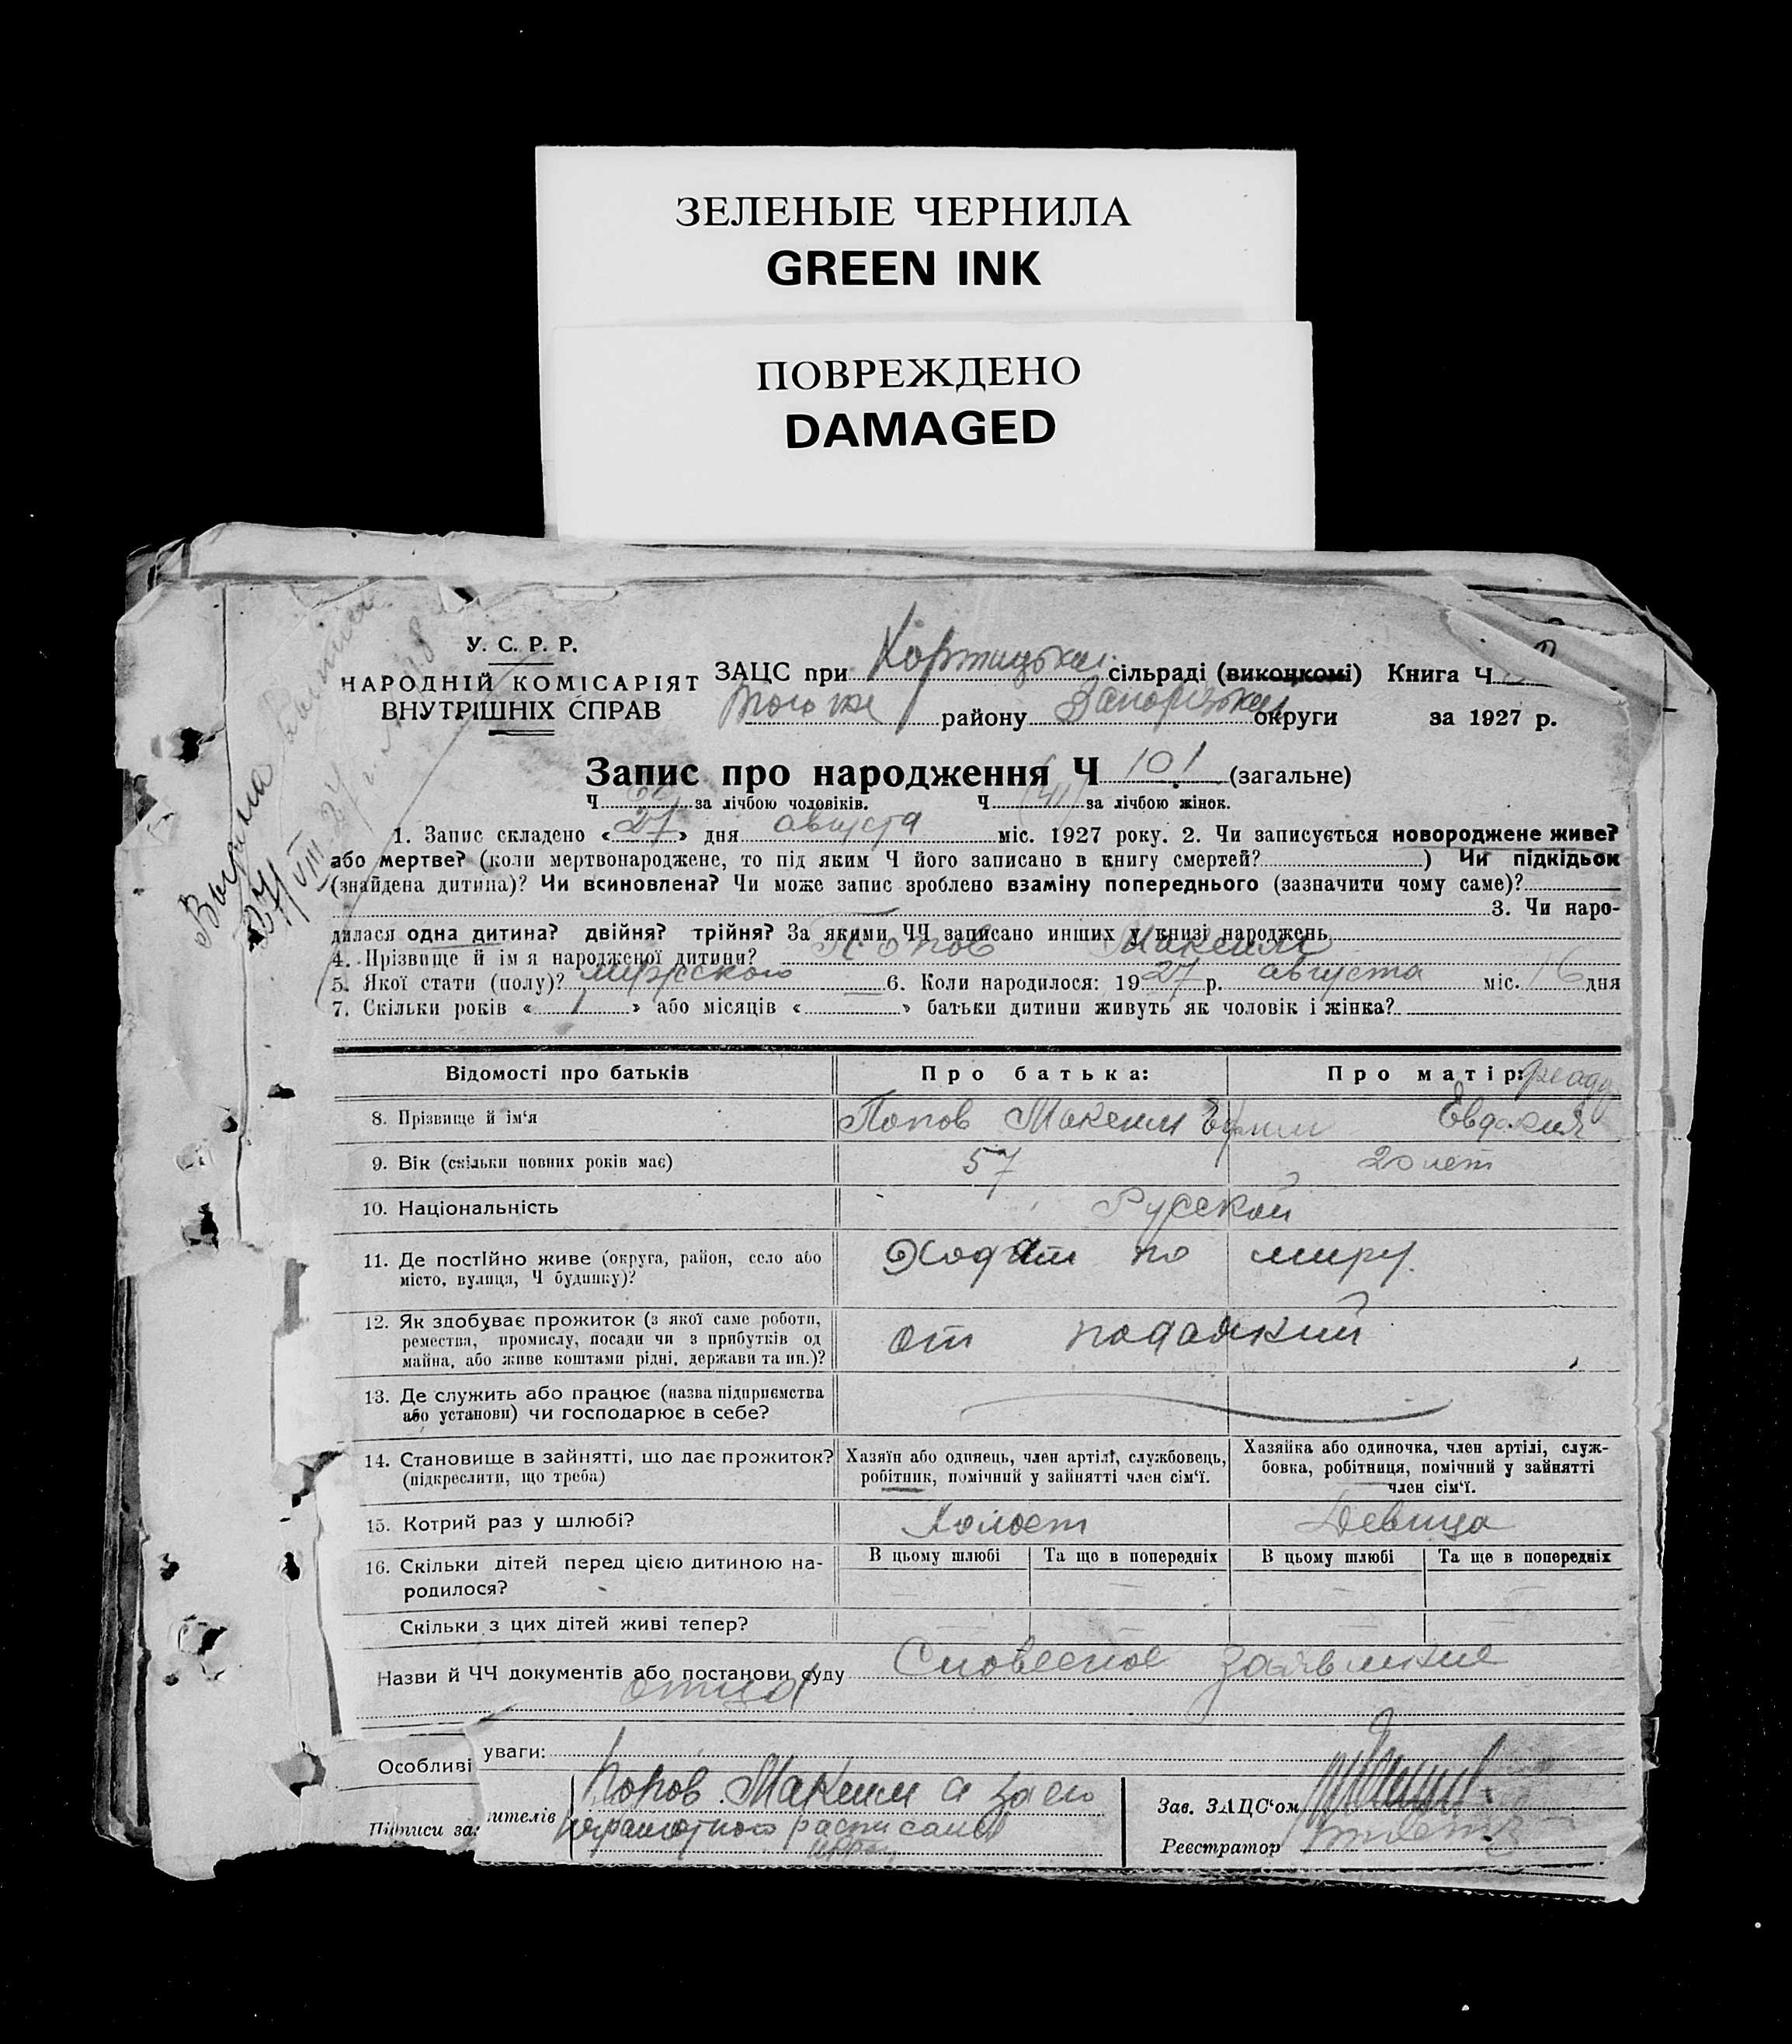 ЗЕЛЕНЫЕ ЧЕРНИЛА
GREEN INK
ПОВРЕЖДЕНО
DAMAGED
У. С. Р. Р.
НАРОДНІЙ КОМІСАРІЯТ
ВНУТРІШНІХ СПРАВ
ЗАЦС при Хортицькій сільраді (виконкомі) Книга Ч
того же району Запорізької округи за 1927 р.
Запис про народження Ч 101 (загальне)
Ч за лічбою чоловіків. Ч за лічбою жінок.
1. Запис складено «27» дня августа міс. 1927 року. 2. Чи записується новороджене живе?
або мертве? (коли мертвонароджене, то під яким Ч його записано в книгу смертей? ) Чи підкідьок
(знайдена дитина)? Чи всиновлена? Чи може запис зроблено взаміну попереднього (зазначити чому саме)?
3. Чи наро-
дилася одна дитина? двійня? трійня? За якими ЧЧ записано инших у книзі народжень
4. Прізвище й ім я народженої дитини? Попов Максим
5. Якої стати (полу)? мужского 6. Коли народилося: 1927 р. августа міс. 16 дня
7. Скільки років « 1 » або місяців « — » батьки дитини живуть як чоловік і жінка?
Відомості про батьків Про батька: Про матір:
8. Прізвище й ім'я Попов Максим Ефим Евдокия
9. Вік (скільки повних років має) 57 20 лет
10. Національність Русской
11. Де постійно живе (округа, район, село або
місто, вулиця, Ч будинку)? Ходят по миру.
12. Як здобуває прожиток (з якої саме роботи,
ремества, промислу, посади чи з прибутків од
майна, або живе коштами рідні, держави та ин.)? от подаяний
13. Де служить або працює (назва підприємства
або установи) чи господарює в себе?
14. Становище в зайнятті, що дає прожиток?
(підкреслити, що треба)
Хазяїн або одинець, член артілі, службовець,
робітник, помічний у зайнятті член сім'ї.
Хазяйка або одиночка, член артілі, служ-
бовка, робітниця, помічний у зайнятті
член сім'ї.
15. Котрий раз у шлюбі? Холост Девица
16. Скільки дітей перед цією дитиною на-
родилося?
В цьому шлюбі Та ще в попередніх В цьому шлюбі Та ще в попередніх
Скільки з цих дітей живі тепер?
Назви й ЧЧ документів або постанови суду Словесное заявление
отца
Особливі уваги:
Підписи за ителів Попов Максим а за его
неграмотного расписался
Зав. ЗАЦС'ом
Реєстратор